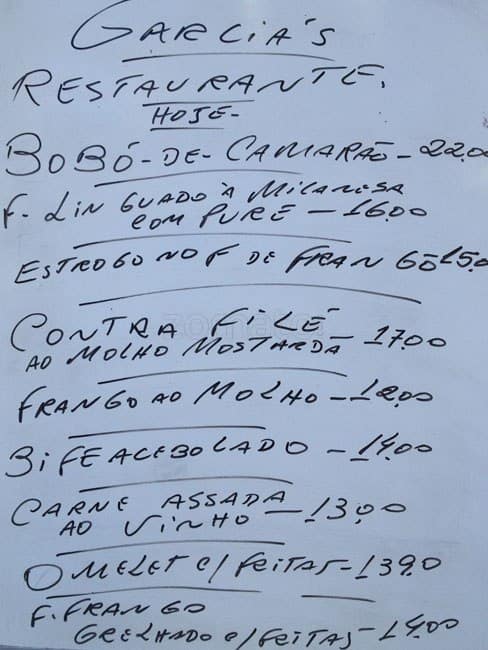 GARCIA'S
RESTAURANTE.
HOJE-
BOBÓ-DE-CAMARÃO-22.00
F. LINGUADO À MILANESA
COM PURÊ - 16.00
ESTROGONOF DE FRANGO 15.0
CONTRA FILÉ
AO MOLHO MOSTARDA - 17.00
FRANGO AO MOLHO - 12.00
BIFE ACEBOLADO - 14.00
CARNE ASSADA
AO VINHO - 13.00
OMELET C/ FEITAS - 13.90
F. FRANGO
GRELHADO C/ FEITAS - 14.00